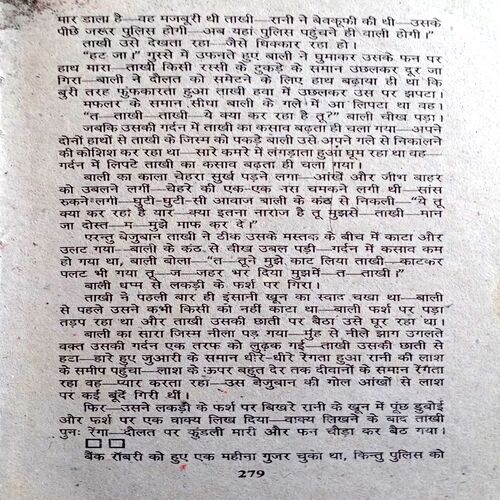 मार डाला है—वह मजबूरी थी ताखी—रानी ने बेवकूफी की थी—उसके
पीछे जरूर पुलिस होगी—अब यहां पुलिस पहुंचने ही वाली होगी।"
ताखी उसे देखता रहा—जैसे धिक्कार रहा हो।
"हट जा।" गुस्से में उफनते हुए बाली ने घुमाकर उसके फन पर
हाथ मारा—ताखी किसी रस्सी के टुकड़े के समान उछलकर दूर जा
गिरा—बाली ने दौलत को समेटने के लिए हाथ बढ़ाया ही था कि
बुरी तरह फुंफकारता हुआ ताखी हवा में उछलकर उस पर झपटा
मफलर के समान सीधा बाली के गले में आ लिपटा था वह।
"त—ताखी—ताखी—ये क्या कर रहा है तू?" बाली चीख पड़ा।
जबकि उसकी गर्दन में ताखी का कसाव बढ़ता ही चला गया—अपने
दोनों हाथों से ताखी के जिस्म को पकड़े बाली उसे अपने गले से निकालने
की कोशिश कर रहा था—सारे कमरे में लंगड़ाता हुआ घूम रहा था वह—
गर्दन में लिपटे ताखी का कसाव बढ़ता ही चला गया।
बाली का काला चेहरा सुर्ख पड़ने लगा—आंखें और जीभ बाहर
को उबलने लगीं—चेहरे की एक-एक नस चमकने लगी थी—सांस
रुकने लगी—घुटी-घुटी-सी आवाज बाली के कंठ से निकली—"ये तू
क्या कर रहा है यार—क्या इतना नाराज है तू मुझसे—ताखी—मान
जा दोस्त—म—मुझे माफ कर दे।"
परन्तु बेजुबान ताखी ने ठीक उसके मस्तक के बीच में काटा और
उलट गया—बाली के कंठ से चीख उबल पड़ी—गर्दन में कसाव कम
हो गया था, बाली बोला—"त—तूने मुझे काट लिया ताखी—काटकर
पलट भी गया तू—ज—जहर भर दिया मुझमें—त—ताखी।"
बाली धम्म से लकड़ी के फर्श पर गिरा।
ताखी ने पहली बार ही इंसानी खून का स्वाद चखा था—बाली
से पहले उसने कभी किसी को नहीं काटा था—बाली फर्श पर पड़ा
तड़प रहा था और ताखी उसकी छाती पर बैठा उसे घूर रहा था।
बाली का सारा जिस्म नीला पड़ गया—मुंह से नीले झाग उगलते
वक्त उसकी गर्दन एक तरफ को लुढ़क गई—ताखी उसकी छाती से
हटा—हारे हुए जुआरी के समान धीरे-धीरे रेंगता हुआ रानी की लाश
के समीप पहुंचा—लाश के ऊपर बहुत देर तक दीवानों के समान रेंगता
रहा वह—प्यार करता रहा—उस बेजुबान की गोल आंखों से लाश
पर कई बूंदें गिरी थीं।
फिर—उसने लकड़ी के फर्श पर बिखरे रानी के खून में पूंछ डुबोई
और फर्श पर एक वाक्य लिख दिया—वाक्य लिखने के बाद ताखी
पुनः रेंगा—दौलत पर कुंडली मारी और फन चौड़ा कर बैठ गया।
□□
बैंक रॉबरी को हुए एक महीना गुजर चुका था, किन्तु पुलिस को
279